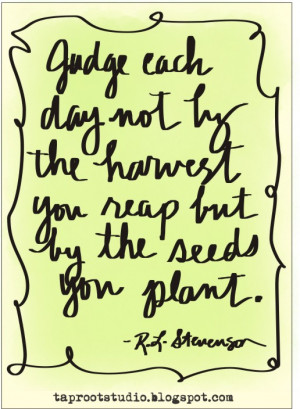 Judge each
day not by
the harvest
you reap but
by the seeds
you plant.
-R.L. Stevenson
taprootstudio.blogspot.com